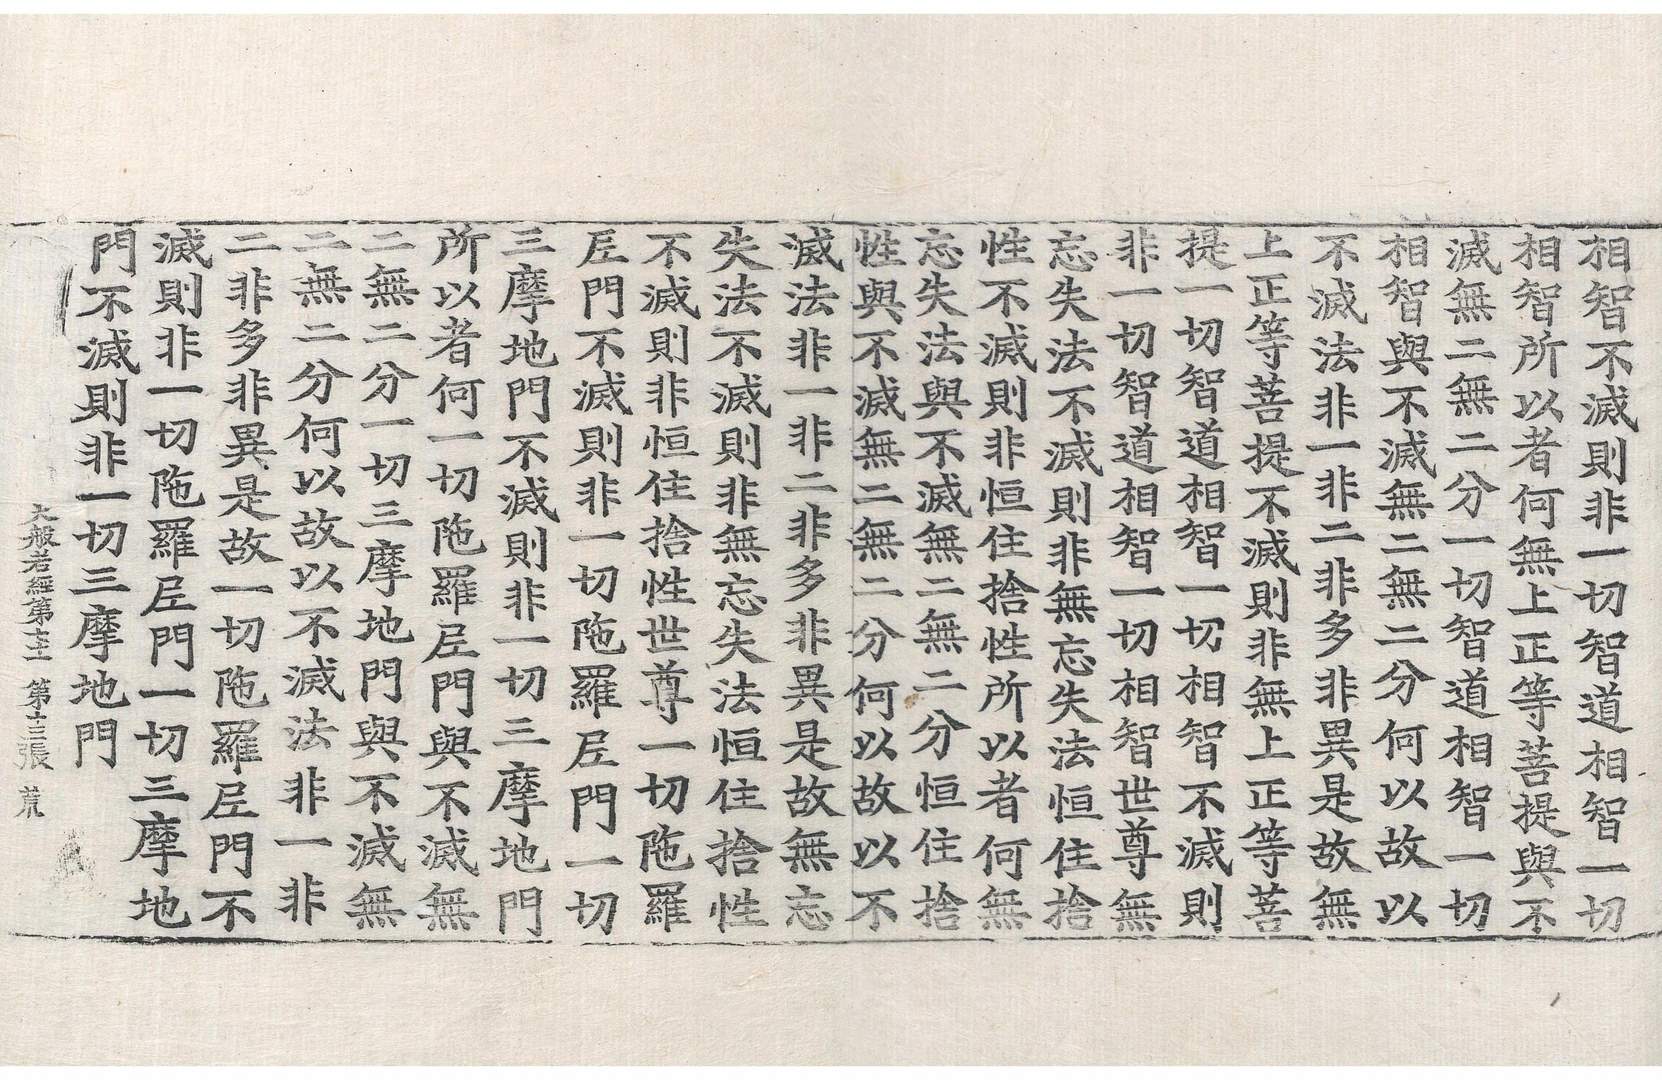 相智不滅則非一切智道相智一切
相智所以者何無上正等菩提與不
滅無二無二分一切智道相智一切
相智與不滅無二無二分何以故以
不滅法非一非二非多非異是故無
上正等菩提不滅則非無上正等菩
提一切智道相智一切相智不滅則
非一切智道相智一切相智世尊無
忘失法不滅則非無忘失法恒住捨
性不滅則非恒住捨性所以者何無
忘失法與不滅無二無二分恒住捨
性與不滅無二無二分何以故以不
滅法非一非二非多非異是故無忘
失法不滅則非無忘失法恒住捨性
不滅則非恒住捨性世尊一切陁羅
𡰱門不滅則非一切陁羅𡰱門一切
三摩地門不滅則非一切三摩地門
所以者何一切陁羅𡰱門與不滅無
二無二分一切三摩地門與不滅無
二無二分何以故以不滅法非一非
二非多非異是故一切陁羅𡰱門不
滅則非一切陁羅𡰱門一切三摩地
門不滅則非一切三摩地門
大般若經第七十 第十三張 荒